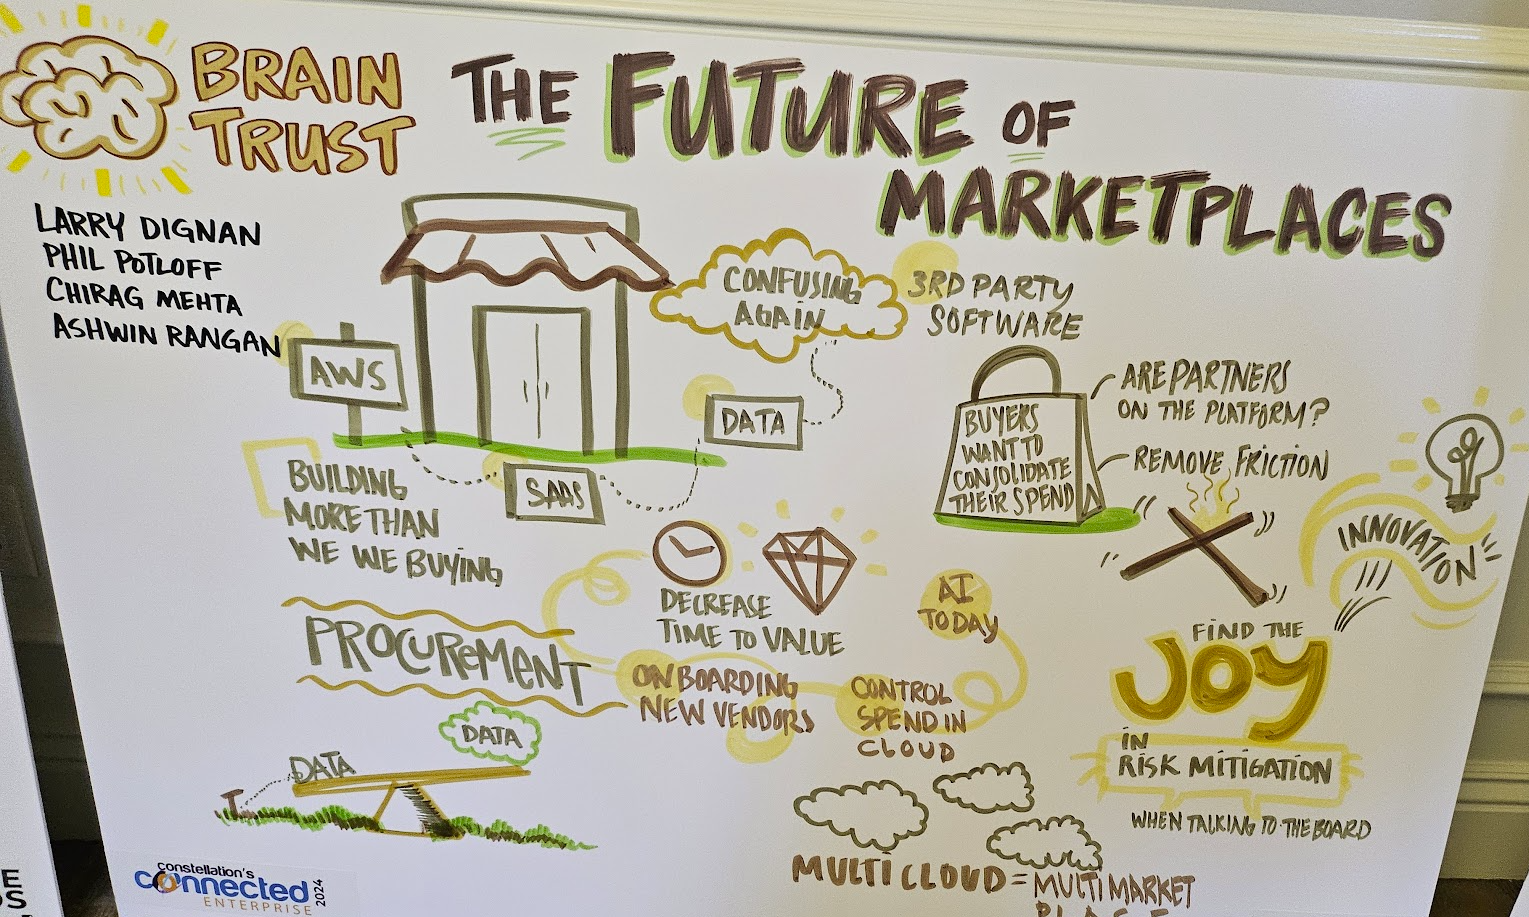 BRAIN
TRUST
THE FUTURE OF
MARKETPLACES
LARRY DIGNAN
PHIL POTLOFF
CHIRAG MEHTA
ASHWIN RANGAN
AWS
CONFUSING
AGAIN
3RD PARTY
SOFTWARE
DATA
SAAS
BUILDING
MORE THAN
WE WE BUYING
BUYERS
WANT TO
CONSOLIDATE
THEIR SPEND
ARE PARTNERS
ON THE PLATFORM?
REMOVE FRICTION
INNOVATION
DECREASE
TIME TO VALUE
AI
TODAY
PROCUREMENT
ONBOARDING
NEW VENDORS
CONTROL
SPEND IN
CLOUD
FIND THE
JOY
IN
RISK MITIGATION
WHEN TALKING TO THE BOARD
DATA
DATA
MULTI CLOUD = MULTI MARKET
PLACE
constellation's
connected
ENTERPRISE
2024
E